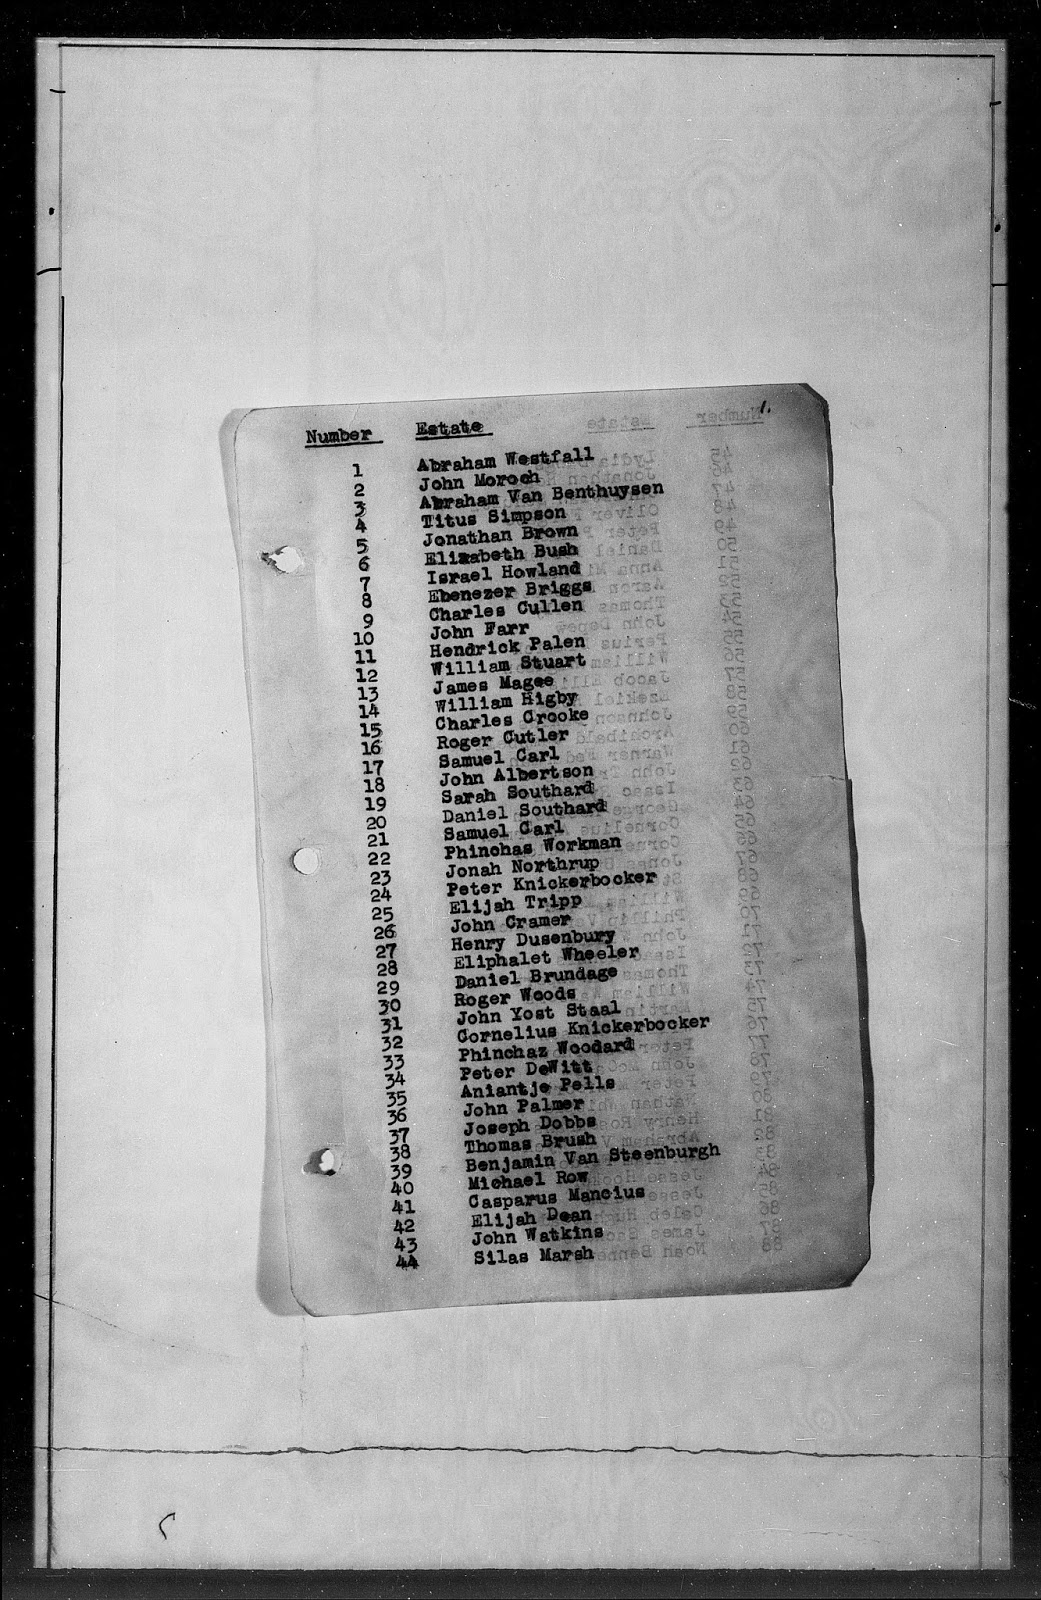 1.
Number Estate
1 Abraham Westfall
2 John Moroch
3 Abraham Van Benthuysen
4 Titus Simpson
5 Jonathan Brown
6 Elizabeth Bush
7 Israel Howland
8 Ebenezer Briggs
9 Charles Cullen
10 John Farr
11 Hendrick Palen
12 William Stuart
13 James Magee
14 William Higby
15 Charles Crooke
16 Roger Cutler
17 Samuel Carl
18 John Albertson
19 Sarah Southard
20 Daniel Southard
21 Samuel Carl
22 Phinchas Workman
23 Jonah Northrup
24 Peter Knickerbocker
25 Elijah Tripp
26 John Cramer
27 Henry Dusenbury
28 Eliphalet Wheeler
29 Daniel Brundage
30 Roger Woods
31 John Yost Staal
32 Cornelius Knickerbocker
33 Phinchaz Woodard
34 Peter DeWitt
35 Aniantje Pells
36 John Palmer
37 Joseph Dobbs
38 Thomas Brush
39 Benjamin Van Steenburgh
40 Michael Row
41 Casparus Mancius
42 Elijah Dean
43 John Watkins
44 Silas Marsh